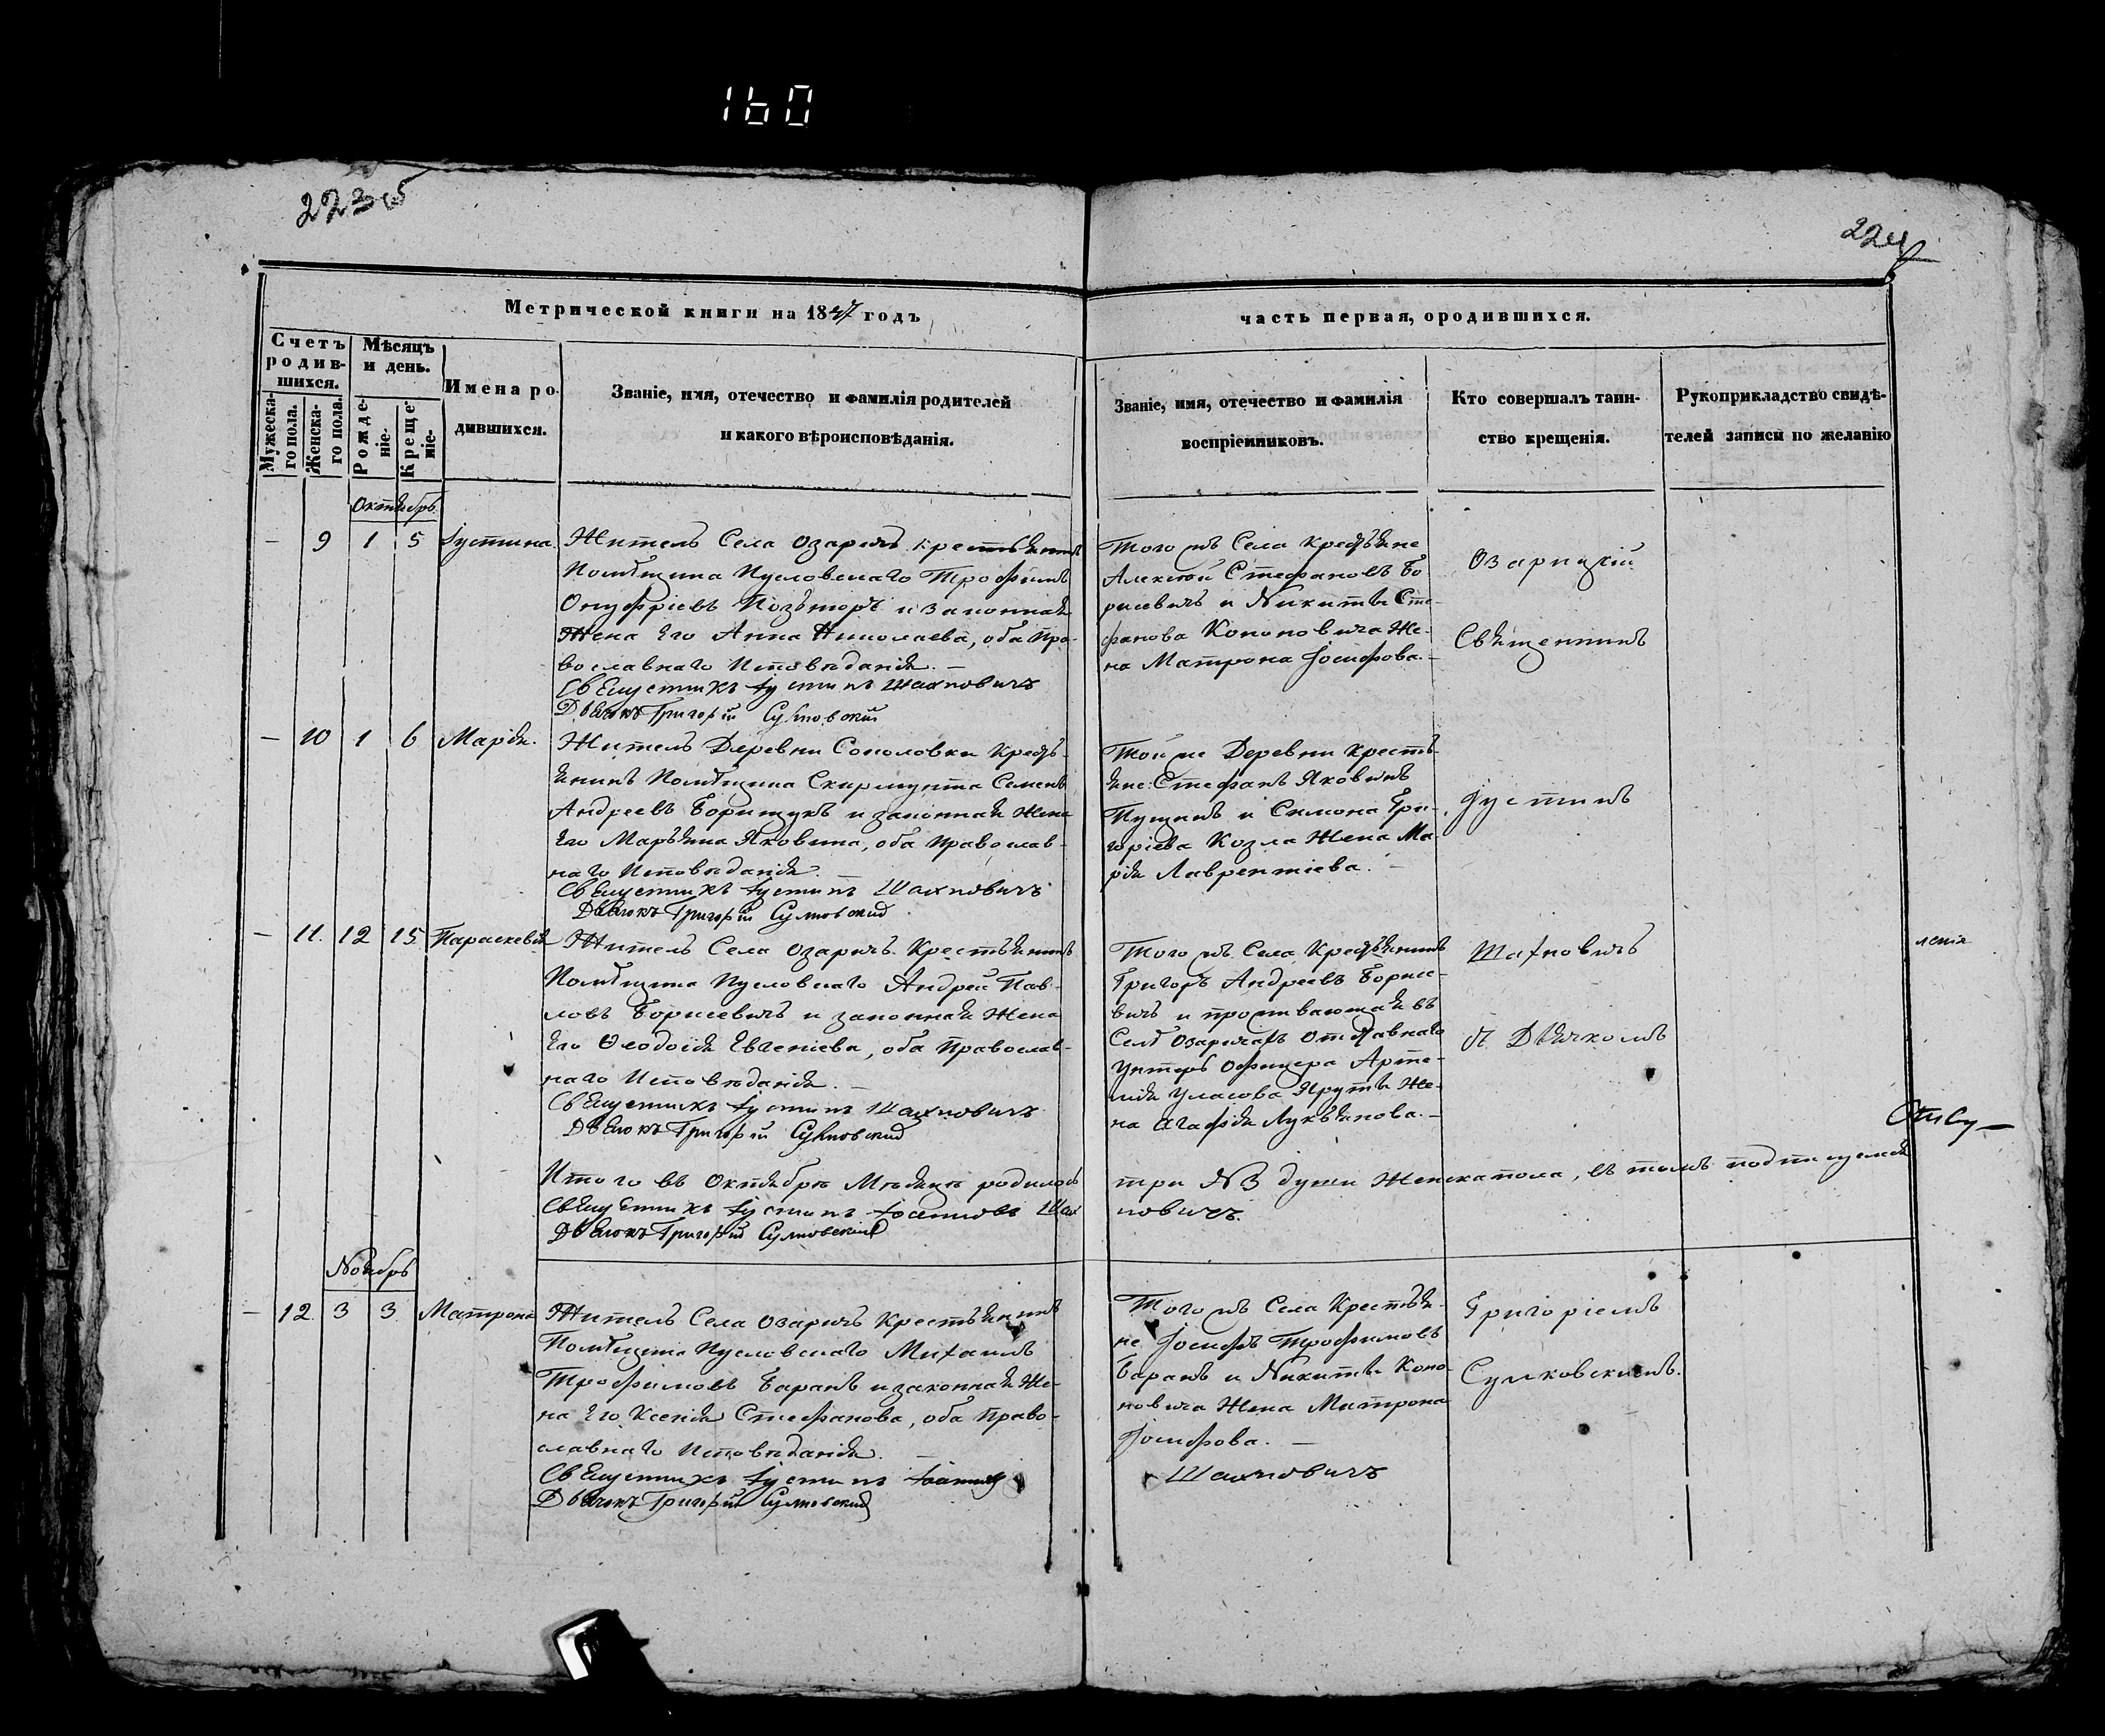 160
223об
224
Метрической книги на 1847 годъ
часть первая, ородившихся.
Счетъ родив-
шихся.
Мужеска-
го пола.
Женска-
го пола.
Мѣсяцъ
и день.
Рожде-
ніе.
Креще-
ніе.
Имена ро-
дившихся.
Званіе, имя, отечество и фамилія родителей
и какого вѣроисповѣданія.
Званіе, имя, отечество и фамилія
воспріемниковъ.
Кто совершалъ таин-
ство крещенія.
Рукоприкладство свидѣ-
телей записи по желанію
Октябрь
— 9 1 5 Іустина.
Житель Села Озаричъ крестьянинъ
Помѣщика Пусловскаго Трофимъ
Онуфріевъ и законная
Жена Его Анна Николаева, оба Пра-
вославнаго Исповѣданія. —
Священникъ Іустинъ Шахновичъ
Дьячокъ Григорій Сулковскій
Того жъ Села Крестьяне
Алексѣй Стефановъ Бо
рисевичъ и Никиты Сте-
фанова Кононовича Же-
на Матрона Іосифова. —
Озарицкій
Священникъ
— 10 1 6 Марія.
Житель Деревни Соколовки Кресть-
янинъ Помѣщика Скирмунта Семенъ
Андреевъ Борищукъ и законная Жена
Его Марьяна Яковина, оба Православ-
наго Исповѣданія. —
Священникъ Іустинъ Шахновичъ
Дьячокъ Григорій Сулковскій
Той же Деревни Кресть-
яне: Стефанъ Яковинъ
и Симона Гри-
горіева Козла Жена Ма-
рія Лаврентіева. —
Іустинъ
— 11. 12 15 Параскевія
Житель Села Озаричъ Крестьянинъ
Помѣщика Пусловскаго Андрей Пав-
ловъ Борисевичъ и законная Жена
Его Ѳеодосія Евгеніева, оба Православ-
наго Исповѣданія. —
Священникъ Іустинъ Шахновичъ
Дьячокъ Григорій Сулковскій
Того жъ Села Крестьянинъ
Григоръ Андреевъ Борисе-
вичъ и проживающая въ
Селѣ Озаричахъ Отставнаго
Унтеръ Офицера Арте-
мія Уласова Яруты Же-
на Агафія Лукьянова. —
Шахновичъ
съ Дьячкомъ
Итого въ Октябрѣ Мѣсяцѣ родилось
три №3 души Женска пола, въ томъ подписуемся
Священникъ Іустинъ Іосифовъ Шах
новичъ.
Дьячокъ Григорій Сулковскій
Ноябрь
— 12. 3 3. Матрона
Житель Села Озаричъ Крестьянинъ
Помѣщика Пусловскаго Михаилъ
Трофимовъ Баранъ и законная Же-
на Его Ксенія Стефанова, оба Право-
славнаго Исповѣданія. —
Священникъ Іустинъ
Шахновичъ
Дьячокъ Григорій Сулковскій
Того жъ Села Крестья-
не Іосифъ Трофимовъ
Баранъ и Никиты Коно-
новича Жена Матрона
Іосифова. —
Григоріемъ
Сулковскимъ.